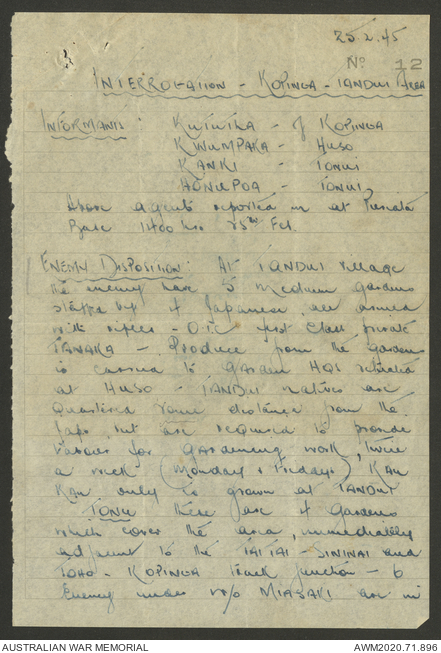 25.2.45
No 12
INTERROGATION - KOPINGA - TANDUI Area
INFORMANTS: KUTUIKA - of KOPINGA
KWUMPAKA - HUSO
KANKI - TONUI
AONUPOA - TONUI
Above agents reported in at
Base 1400 hrs 25th Feb.
ENEMY DISPOSITION: At TANDUI village
the enemy have 5 medium gardens
staffed by 4 Japanese, all armed
with rifles - O.I.C first class private
TANAKA - Produce from the gardens
is carried to GARDEN HQs situated
at HUSO - TANDUI natives are
quartered some distance from the
Japs, but are required to provide
labour for gardening work, twice
a week (Mondays & Fridays) Kau
Kau only is grown at TANDUI
TONU there are 4 gardens
which cover the area, immediately
adjacent to the TAITAI - SININAI and
TOHO - KOPINGA track junction - 6
Enemy under w/o MIASAKI are in
AUSTRALIAN WAR MEMORIAL
AWM2020.71.896